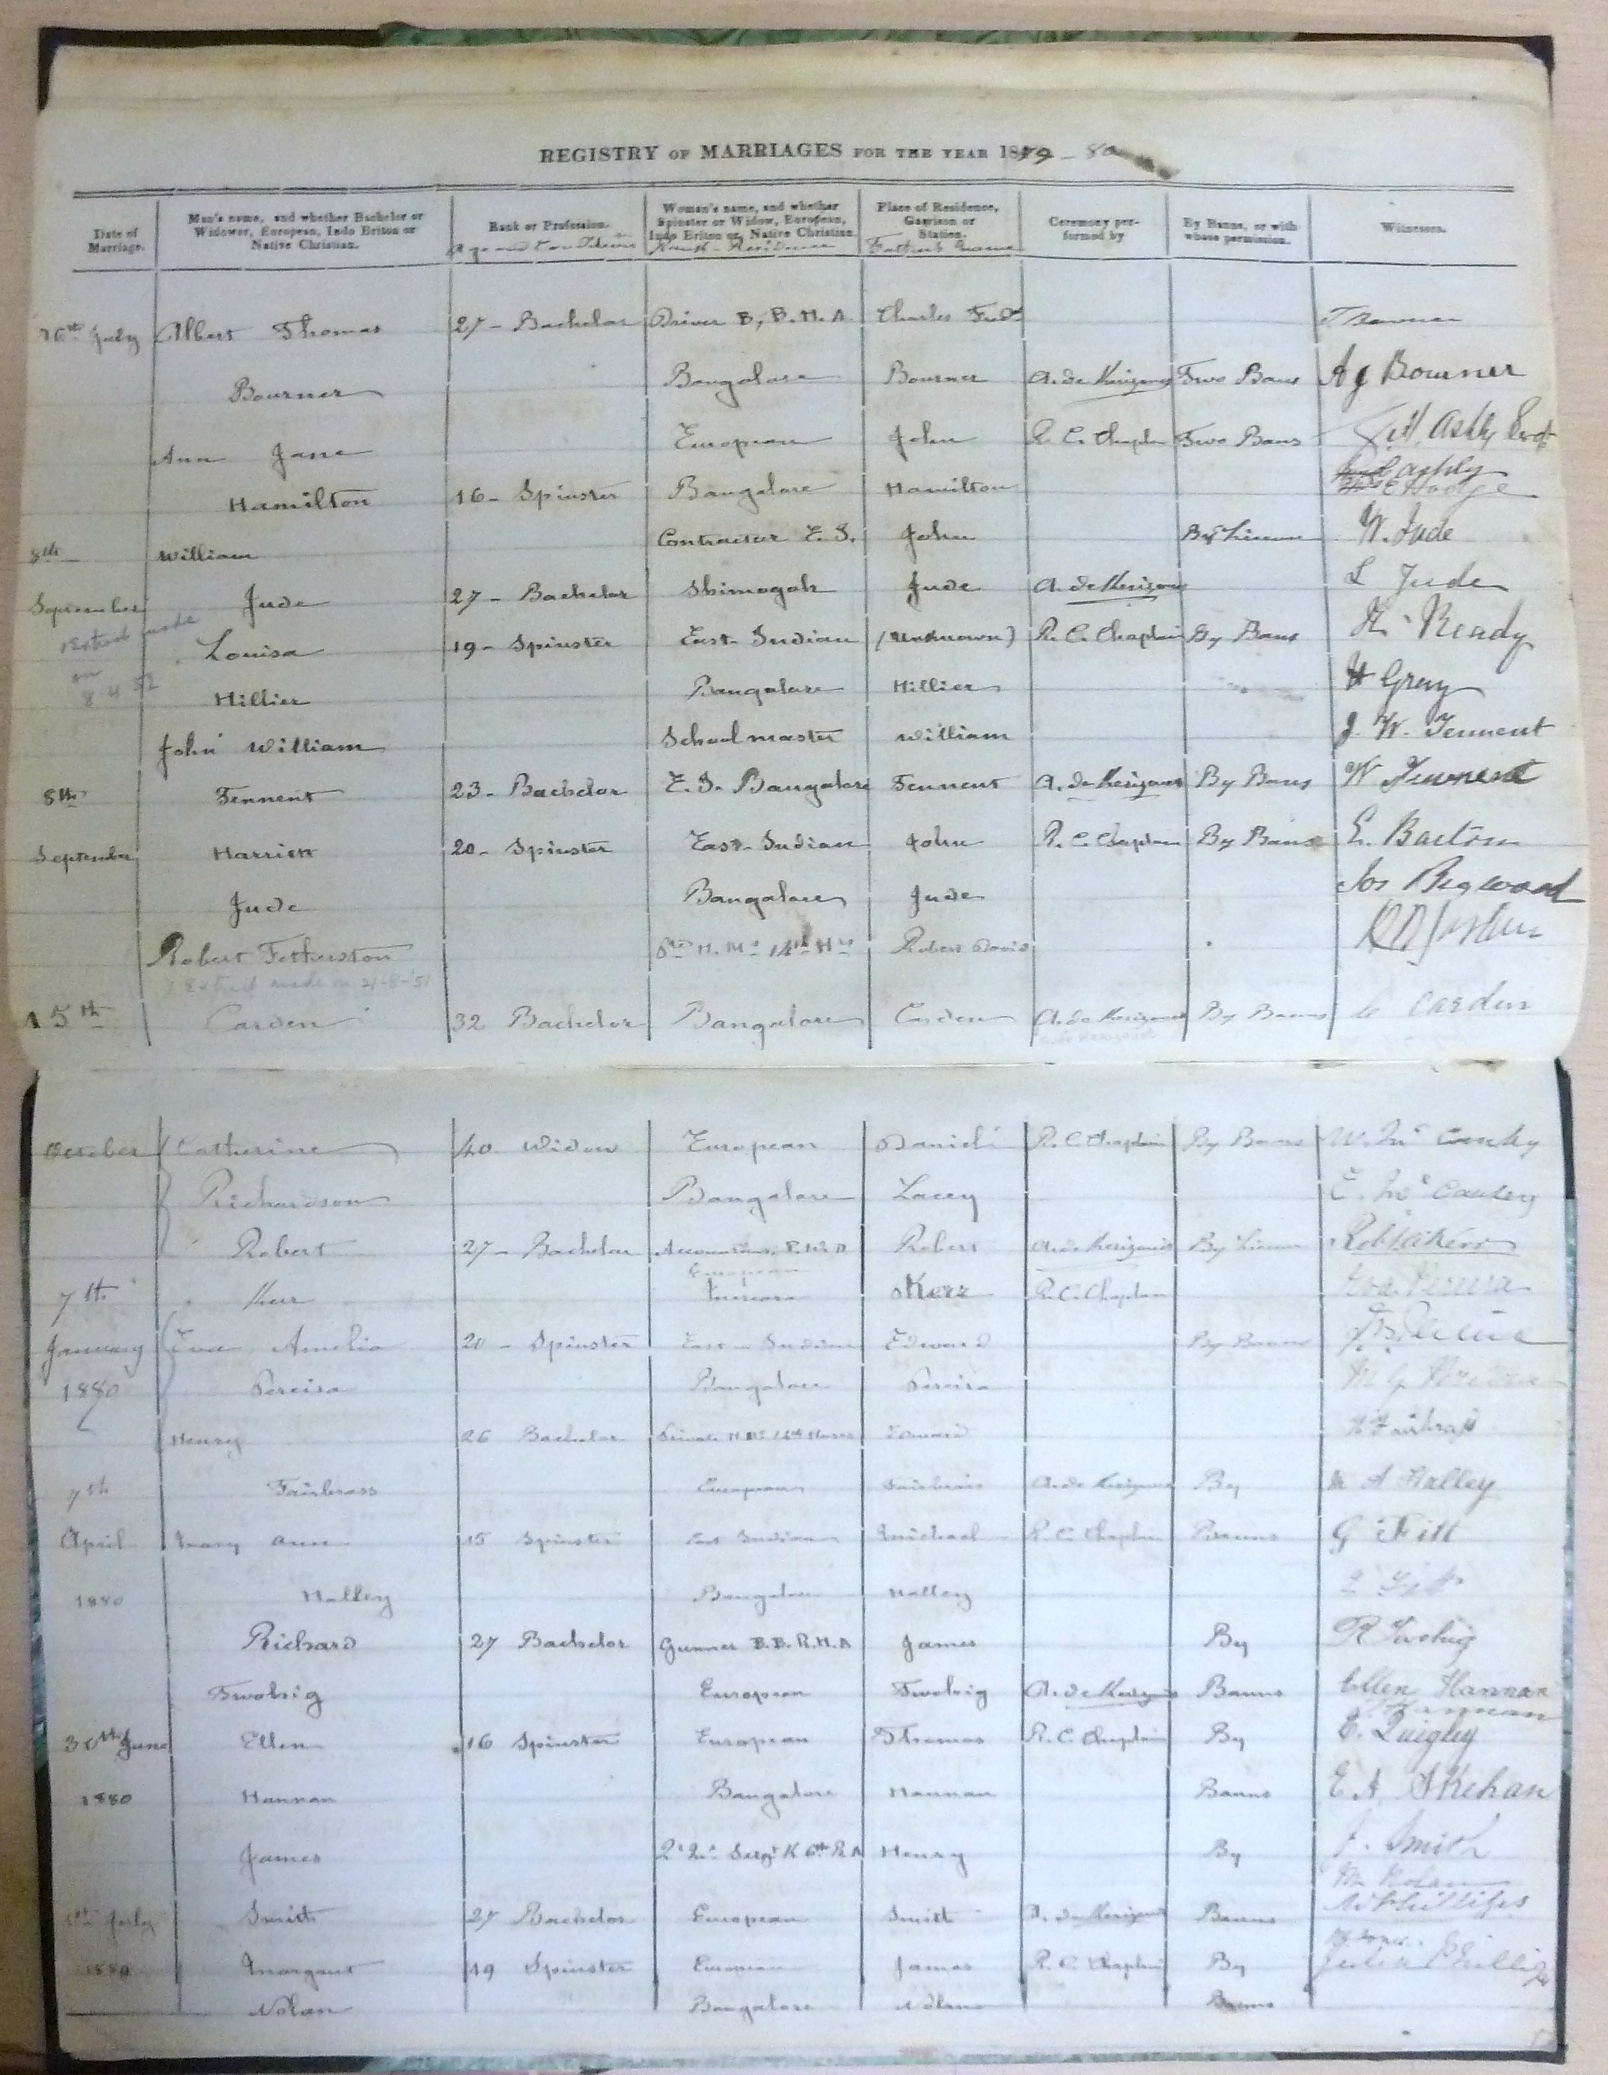 REGISTRY OF MARRIAGES FOR THE YEAR 1879 - 80
Date of Marriage. Man's name, and whether Bachelor or Widower, European, Indo Briton or Native Christian. Rank or Profession. Woman's name, and whether Spinster or Widow, European, Indo Briton or Native Christian Place of Residence, Garrison or Station. Ceremony performed by By Banns, or with whose permission. Witnesses.
Age and Condition Rank - Residence Father's Name
July Albert Thomas 27 - Bachelor Driver B, B.H.A Charles
Bourner Bangalore Bourner A. de Kerizouet Two Bans A J Bourner
Ann Jane European John R. C. Chaplin Two Bans
Hamilton 16 - Spinster Bangalore Hamilton
8th William Contractor E. I. John By License W. Jude
September Jude 27 - Bachelor Shimogah Jude A. de Kerizouet L Jude
Louisa 19 - Spinster East Indian (Unknown) R. C. Chaplain By Bans H. Ready
Hillier Bangalore Hillier H Grey
John William School master William J. W. Tennent
8th Tennent 23 - Bachelor E. I. Bangalore Tennent A. de Kerizouet By Bans W Tennent
September Harriet 20 - Spinster East Indian John R. C. Chaplain By Bans E. Barton
Jude Bangalore Jude Jos Bigwood
Robert Fetherston H. Ms 14th Hrs Robert David
1 Extract made on 21-8-'51
15th Carden 32 Bachelor Bangalore Carden A. de Kerizouet By Banns C Carden
October Catherine 40 Widow European Daniel R. C. Chaplain By Banns
Richardson Bangalore Lacey
Robert 27 - Bachelor Robert A. de Kerizouet By License Robt Kerr
European
7th Kerr Kerr R. C. Chaplain Eva Pereira
January Eva Amelia 20 - Spinster East Indian Edward By Banns
1880 Pereira Bangalore Pereira
Henry 26 Bachelor Private H Ms 14th Hussars Edward H Fairbrass
7th Fairbrass European Fairbrass A. de Kerizouet By M A Halley
April Mary Ann 15 Spinster East Indian Michael R. C. Chaplain Banns G Fitt
1880 Halley Bangalore Halley
Richard 27 Bachelor Gunner B.B. R.H.A James By
Twohig European Twohig A. de Kerizouet Banns Ellen Hannan
30th June Ellen 16 Spinster European Thomas R. C. Chaplain By E. Quigley
1880 Hannan Bangalore Hannan Banns E. A. Skehan
James Henry By J. Smith
M Nolan
July Smith 27 Bachelor European Smith A. de Kerizouet Banns
1880 Margaret 19 Spinster European James R. C. Chaplain By Julia Phillips
Nolan Bangalore Nolan Banns